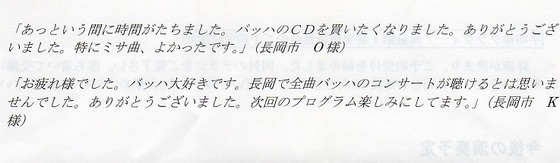 「あっという間に時間がたちました。バッハのＣＤを買いたくなりました。ありがとうござ
いました。特にミサ曲、よかったです。」（長岡市　Ｏ様）
「お疲れ様でした。バッハ大好きです。長岡で全曲バッハのコンサートが聴けるとは思いま
せんでした。ありがとうございました。次回のプログラム楽しみにしてます。」（長岡市　Ｋ
様）
今後の演奏予定